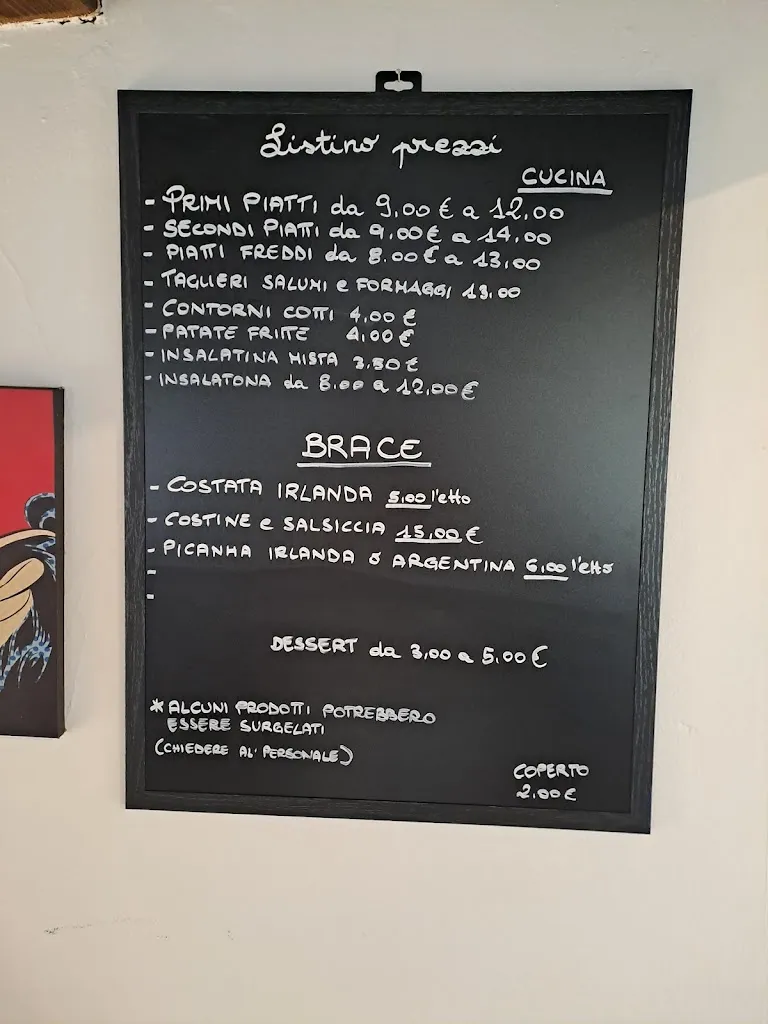 Listino prezzi
CUCINA
- PRIMI PIATTI da 9,00 € a 12,00
- SECONDI PIATTI da 9,00 € a 14,00
- PIATTI FREDDI da 8.00 € a 13,00
- TAGLIERI SALUMI e FORMAGGI 13,00
- CONTORNI COTTI 4,00 €
- PATATE FRITTE 4,00 €
- INSALATINA MISTA 3,50 €
- INSALATONA da 8.00 a 12,00 €
BRACE
- COSTATA IRLANDA 5,00 l'etto
- COSTINE e SALSICCIA 15,00 €
- PICANHA IRLANDA o ARGENTINA 6,00 l'etto
-
-
DESSERT da 3,00 a 5,00 €
* ALCUNI PRODOTTI POTREBBERO
ESSERE SURGELATI
(CHIEDERE AL' PERSONALE)
COPERTO
2,00 €